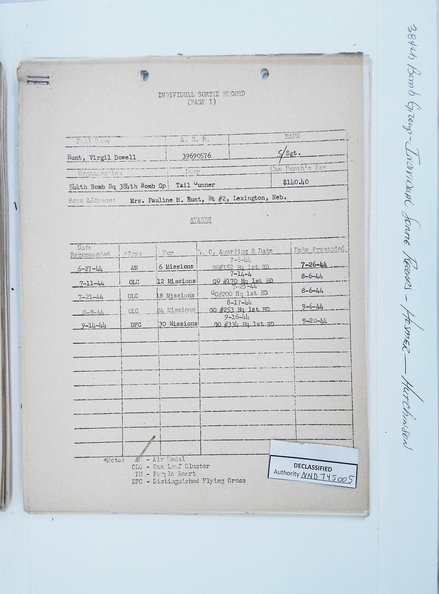 INDIVIDUAL SORTIE RECORD
(PAGE 1)
Full Name A. S. N. RATE
Hunt, Virgil Dowell 39690576 S/Sgt.
Organization Duty One Month's Pay
544th Bomb Sq 384th Bomb Gp Tail Gunner $140.40
Home Address: Mrs. Pauline M. Hunt, Rt #2, Lexington, Neb.
AWARDS
Date Recommended *Type For G. O. Awarding & Date Date Presented
6-27-44 AM 6 Missions 7-5-44 GO#152 Hq 1st BD 7-26-44
7-11-44 OLC 12 Missions 7-14-4 GO #170 Hq 1st BD 8-6-44
7-21-44 OLC 18 Missions GO#200 Hq 1st BD 8-6-44
OLC 24 Missions 8-17-44 GO #253 Hq 1st BD 9-6-44
9-14-44 DFC 30 Missions 9-16-44 GO #334 Hq 1st BD 9-20-44
*Note: AM - Air Medal
OLC - Oak Leaf Cluster
PH - Purple Heart
DFC - Distinguished Flying Cross
DECLASSIFIED
Authority NND 745005
384th Bomb Group - Individual Sortie Records, Hesmer - Hutchinson